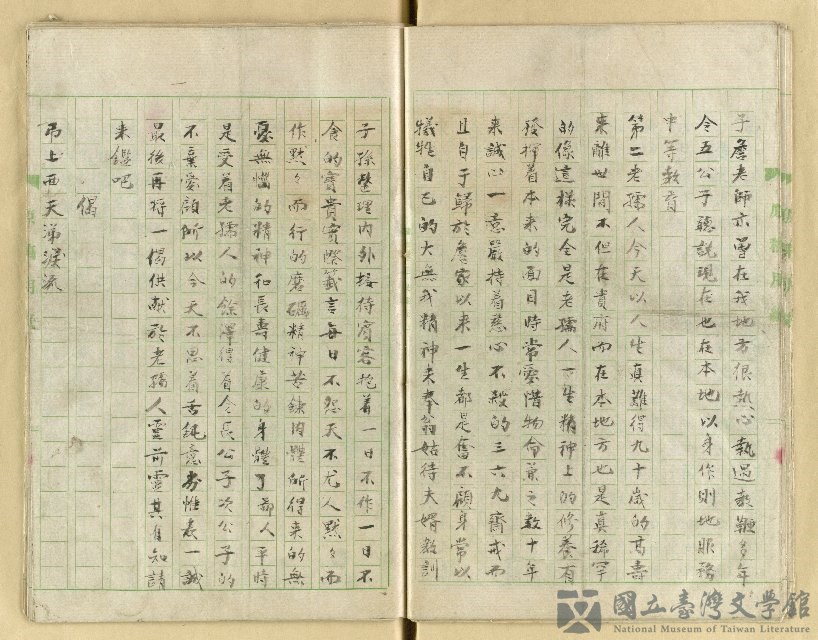 于詹老師亦曾在我地方很熱心執過教鞭多年
令五公子聽說現在也在本地以身作則地服務
中等教育
第二老孺人今天以人生真難得九十歲的高壽
來離世間不但在貴府而在本地方也是真稀罕
的像這樣完全是老孺人一生精神上的修養有
發揮着本來的面目時常愛惜物命兼之數十年
來誠心一意嚴持着慈心不殺的三六九齋戒而
且自于歸於詹家以來一生都是奮不顧身常以
犧牲自己的大無我精神來奉翁姑待夫婿教訓
子孫整理內外接待賓客抱着一日不作一日不
食的寶貴實際箴言每日不怨天不尤人默々而
作默々而行的磨礪精神苦鍊肉體所得來的無
憂無惱的精神和長壽健康的身體了
人平時
是受着老孺人的餘澤得着令長公子次公子的
不棄愛顧所以今天不思着舌鈍意劣惟表一誠
最後再將一偈供獻於老孺人靈前靈其有知請
來鑑吧
偈
吊上西天涕淚流
國立臺灣文學館
National Museum of Taiwan Literature